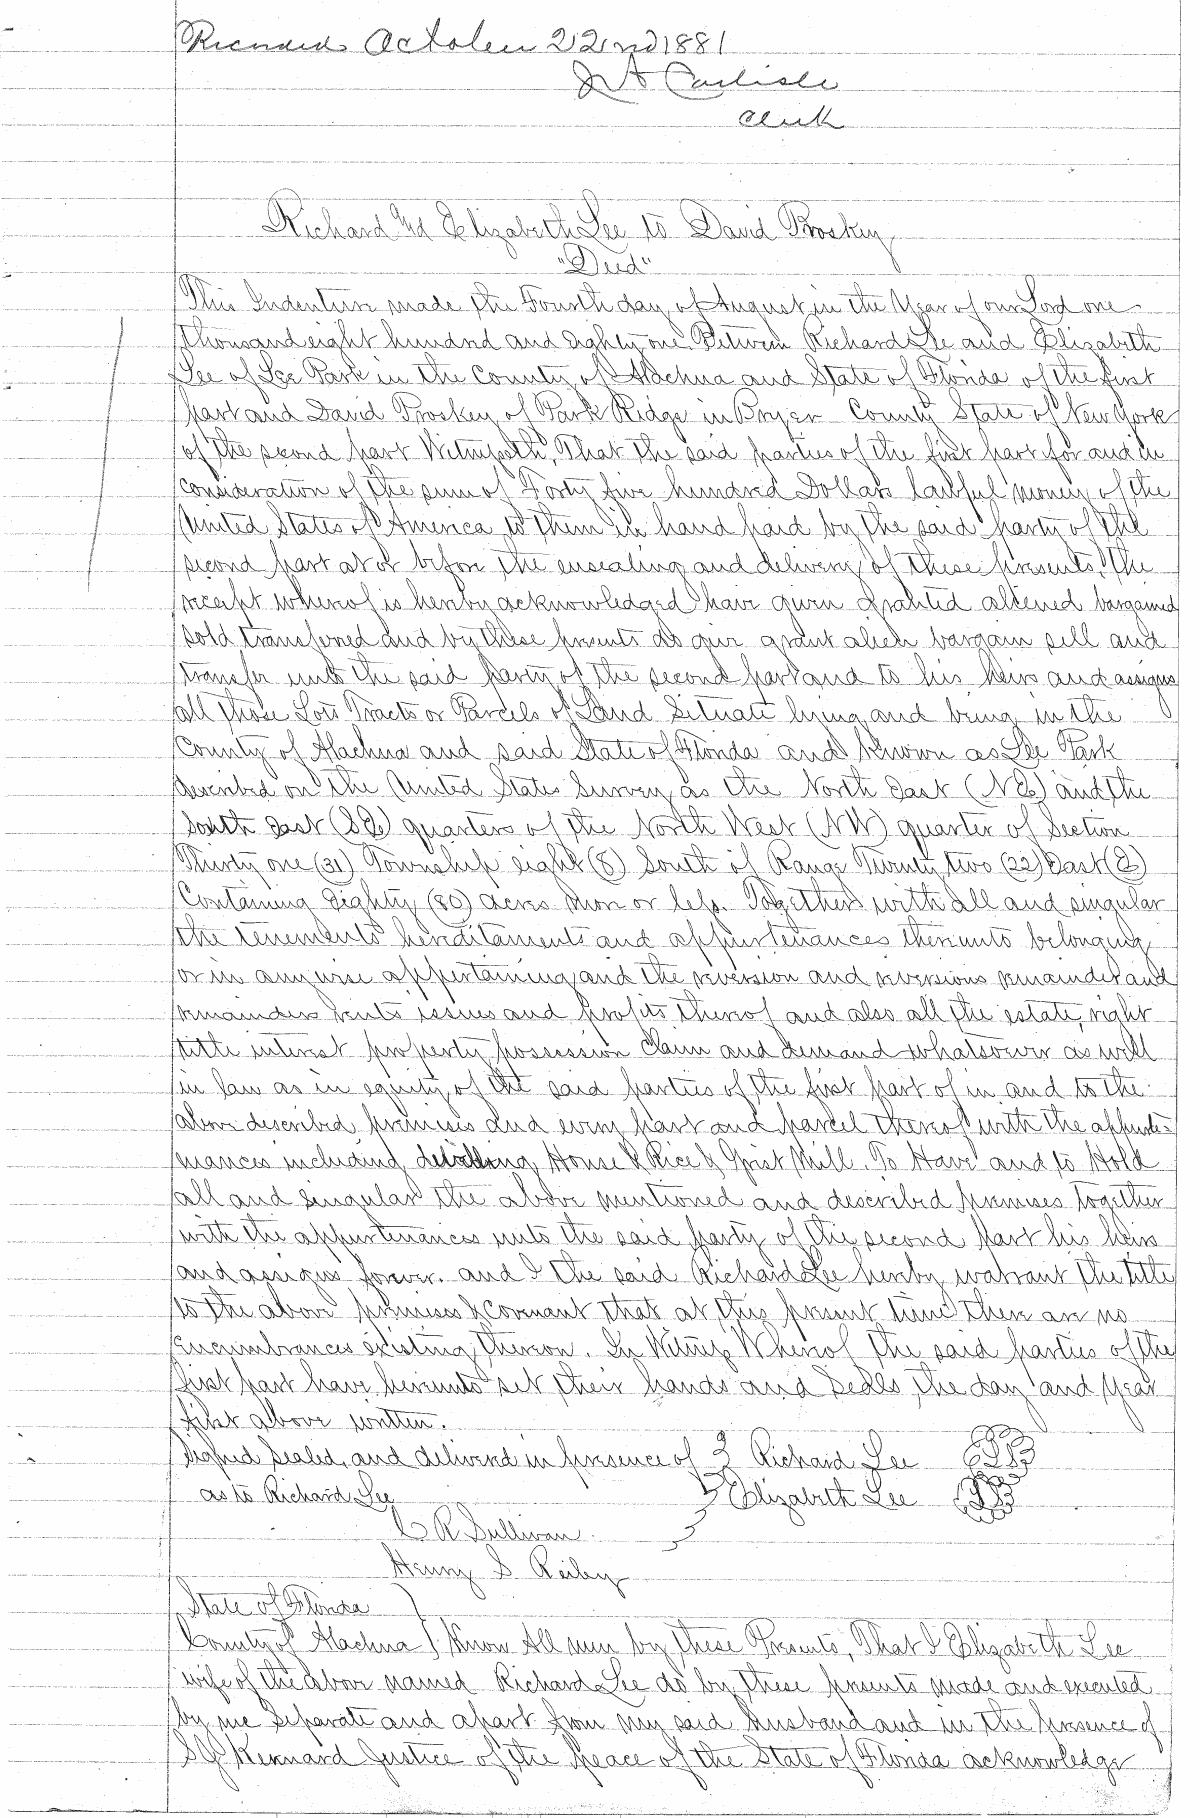 Recorded October 22nd 1881
J A Carlisle
Clerk
Richard and Elizabeth Lee to David Proskey
"Deed"
This Indenture made the Fourth day of August in the Year of our Lord one
thousand eight hundred and Eighty one. Between Richard Lee and Elizabeth
Lee of Lee Park in the County of Alachua and State of Florida of the first
part and David Proskey of Park Ridge in County State of New York
of the second part Witnesseth, That the said parties of the first part for and in
consideration of the sum of Forty five hundred Dollars lawful money of the
United States of America to them in hand paid by the said party of the
second part at or before the ensealing and delivery of these presents, the
receipt whereof is hereby acknowledged have given granted aliened bargained
sold transferred and by these presents do give grant alien bargain sell and
transfer unto the said party of the second part and to his heirs and assigns
all those Lots Tracts or Parcels of Land Situate lying and being in the
County of Alachua and said State of Florida and known as Lee Park
described on the United States Survey as the North East (NE) and the
South East (SE) quarters of the North West (NW) quarter of Section
Thirty one (31) Township eight (8) South of Range Twenty two (22) East (E)
Containing Eighty (80) acres more or less. Together with all and singular
the tenements hereditaments and appurtenances thereunto belonging
or in any wise appertaining and the reversion and reversions remainder and
remainders rents issues and profits thereof and also all the estate, right
title interest property possession Claim and demand whatsoever as well
in law as in equity of the said parties of the first part of in and to the
above described premises and every part and parcel thereof with the appurte-
nances including dwelling House & Rice & Grist Mill. To Have and to Hold
all and singular the above mentioned and described premises together
with the appurtenances unto the said party of the second part his heirs
and assigns forever. and I the said Richard Lee hereby warrant the title
to the above premises & covenant that at this present time there are no
encumbrances existing thereon. In Witness Whereof the said parties of the
first part have hereunto set their hands and Seals, the day and year
first above written.
Signed Sealed, and delivered in presence of Richard Lee
as to Richard Lee Elizabeth Lee
C R Sullivan
Henry S Reiley
State of Florida
County of Alachua } Know All men by these Presents, That I Elizabeth Lee
wife of the above named Richard Lee do by these presents made and executed
by me Separate and apart from my said husband and in the presence of
Kennard Justice of the Peace of the State of Florida acknowledge